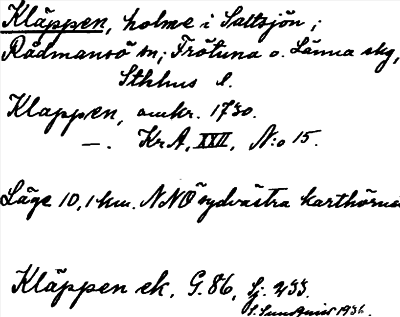 Kläppen, holme i Saltsjön;
Rådmansö sn; Frötuna o. Länna skg,
Sthlms l.
Kläppen, omkr. 1730.
—. KrA, XXII, N:o 15.
Läge 10,1 km. NNO sydvästra karthörnet
Kläppen ek. G.86, Sj. 233.
S. Sundqvist 1936.